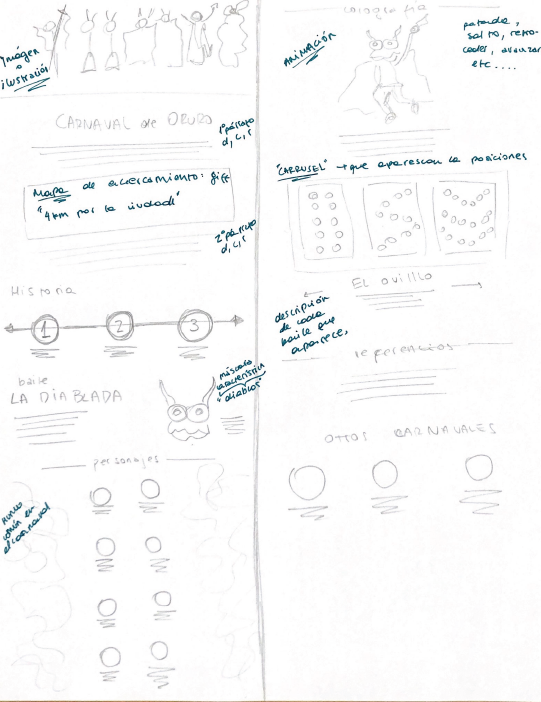 Imágen
o
ilustración
CARNAVAL de ORURO
1º párrafo
d, c, s
Mapa de acercamiento: giff
"4km por la ciudad"
2º párrafo
d, c, s
Historia
1 2 3
baile
LA DIABLADA
máscara
característica
"diablos"
personajes
humo
común en
el carnaval
coreografía
ANIMACIÓN
patada,
salto, retro-
ceder, avanzar
etc....
"CARRUSEL" → que aparescan la posiciones
EL ovillo
descripción
de cada
baile que
aparece,
referencias
OTROS CARNAVALES